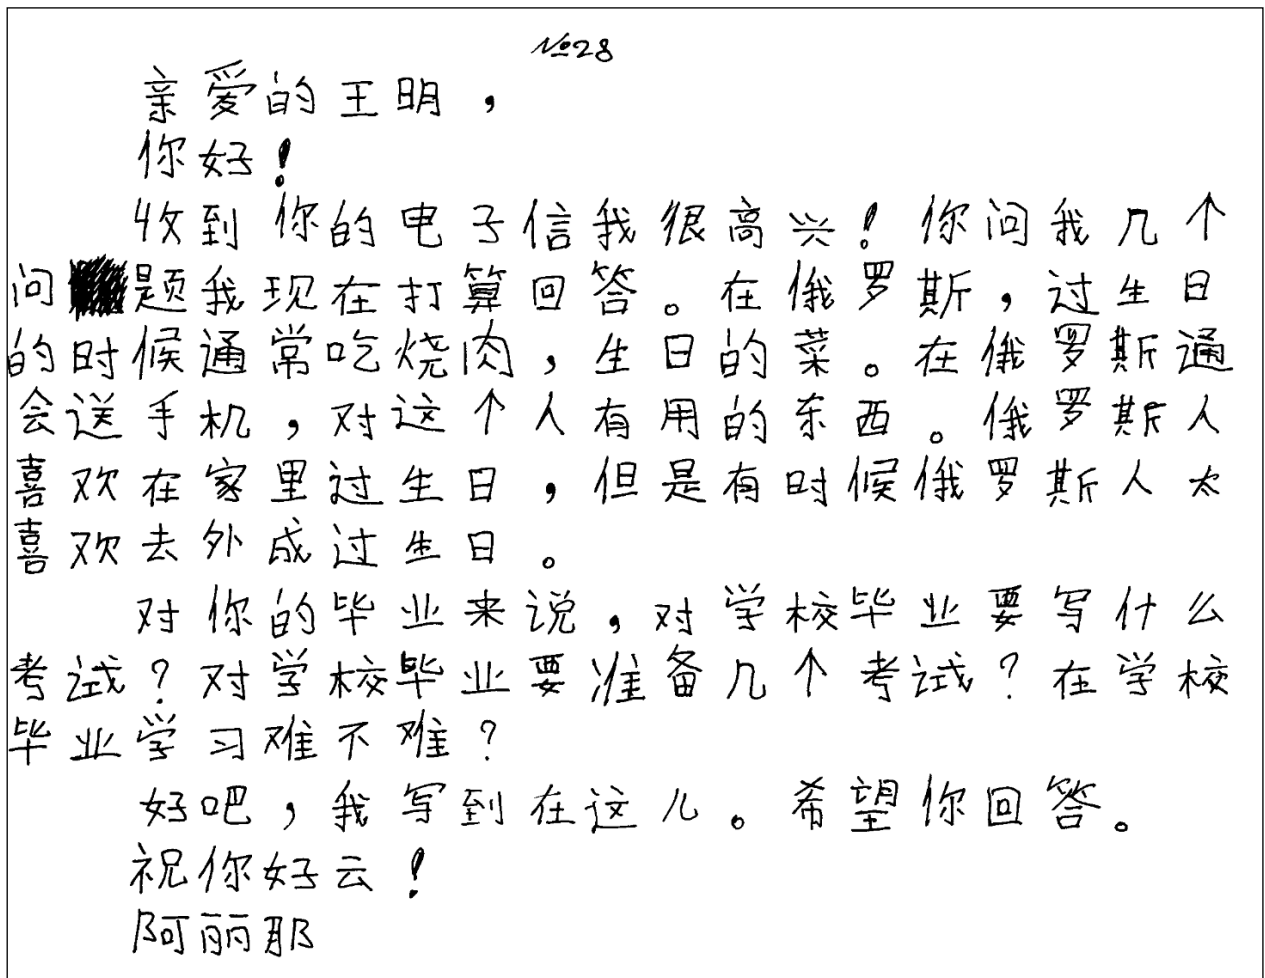 №28
亲爱的王明，
你好！
收到你的电子信我很高兴！你问我几个
问题我现在打算回答。在俄罗斯，过生日
的时候通常吃烧肉，生日的菜。在俄罗斯通
会送手机，对这个人有用的东西。俄罗斯人
喜欢在家里过生日，但是有时候俄罗斯人太
喜欢去外成过生日。
对你的毕业来说，对学校毕业要写什么
考试？对学校毕业要准备几个考试？在学校
毕业学习难不难？
好吧，我写到在这儿。希望你回答。
祝你好云！
阿丽那